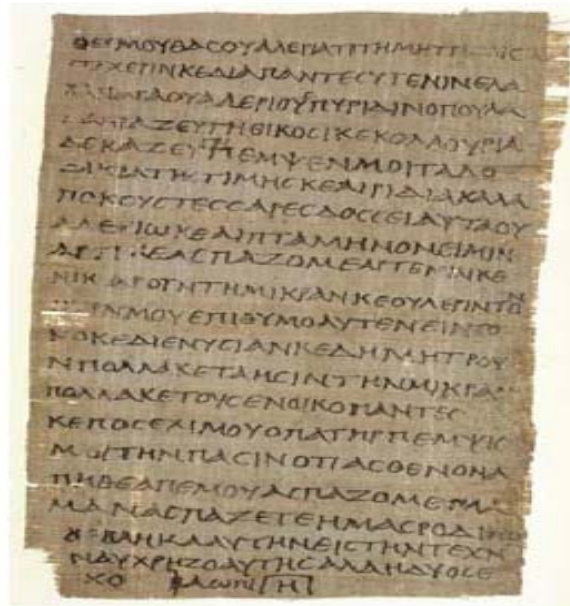 ΘΕΡΜΟΥΘΑϹΟΥΑΛΕΡΙΑΤΙΤΗΜΗΤΡΙ
ΧΕΡΙΝΚΕΔΙΑΠΑΝΤΕϹΥΓΕΝΙΝΕΛΑ
ΟΥΑΛΕΡΙΟΥΠΥΡΙΔΙΝΟΠΟΥΛΑ
ΖΕΥΓΗΒΙΚΟϹΙΚΕΚΟΛΛΟΥΡΙΑ
ΔΕΚΑΖΕΥΓΗΕΜΨΕΝΜΟΙΠΑΛΟ
ΤΗϹΤΙΜΗϹΚΕΑΙΡΙΔΙΑΚΑΛΑ
ΠΟΚΟΥϹΤΕϹϹΑΡΕϹΔΟϹϹΕΙΑΥΤΑΟΥ
ΑΛΕΡΙΩΚΕΑΙΠΤΑΜΗΝΟΝΕΙΜΙΝ
ΑΡΤΙΚΕΑϹΠΑΖΟΜΕ
ΤΗΜΙΚΡΑΝΚΕΟΥΛΕΡΙΝΤΟΝ
ΜΟΥΕΠΙΘΥΜΟΑΥΤΕΝΕΙΝΤΟ
ΝΟΚΕΔΙΕΝΥϹΙΑΝΚΕΔΗΜΗΤΡΟΥ
ΝΠΟΛΛΑΚΕΤΑΗϹΙΝΤΗΝΜΙΚΡΑΝ
ΠΟΛΛΑΚΕΤΟΥϹΕΝΟΙΚΟΠΑΝΤΕϹ
ΚΕΠΟϹΕΧΙΜΟΥΟΠΑΤΗΡΠΕΜΨΙϹ
ΜΟΙΤΗΝΠΑϹΙΝΟΤΙΑϹΘΕΝΟΝΑ
ΠΗΘΕΑΠΕΜΟΥΑϹΠΑΖΟΜΕ
ΜΑΝΑϹΠΑΖΕΤΕΗΜΑϹΡΟΔΙΝΗ
ΒΛΗΚΑΑΥΤΗΝΕΙϹΤΗΝΤΕΧΝ
ΝΔΥΧΡΗΖΟΑΥΤΗϹΑΛΑΗΔΥΟϹΕ
ΧΟ ΦΑΩΦΙ Η